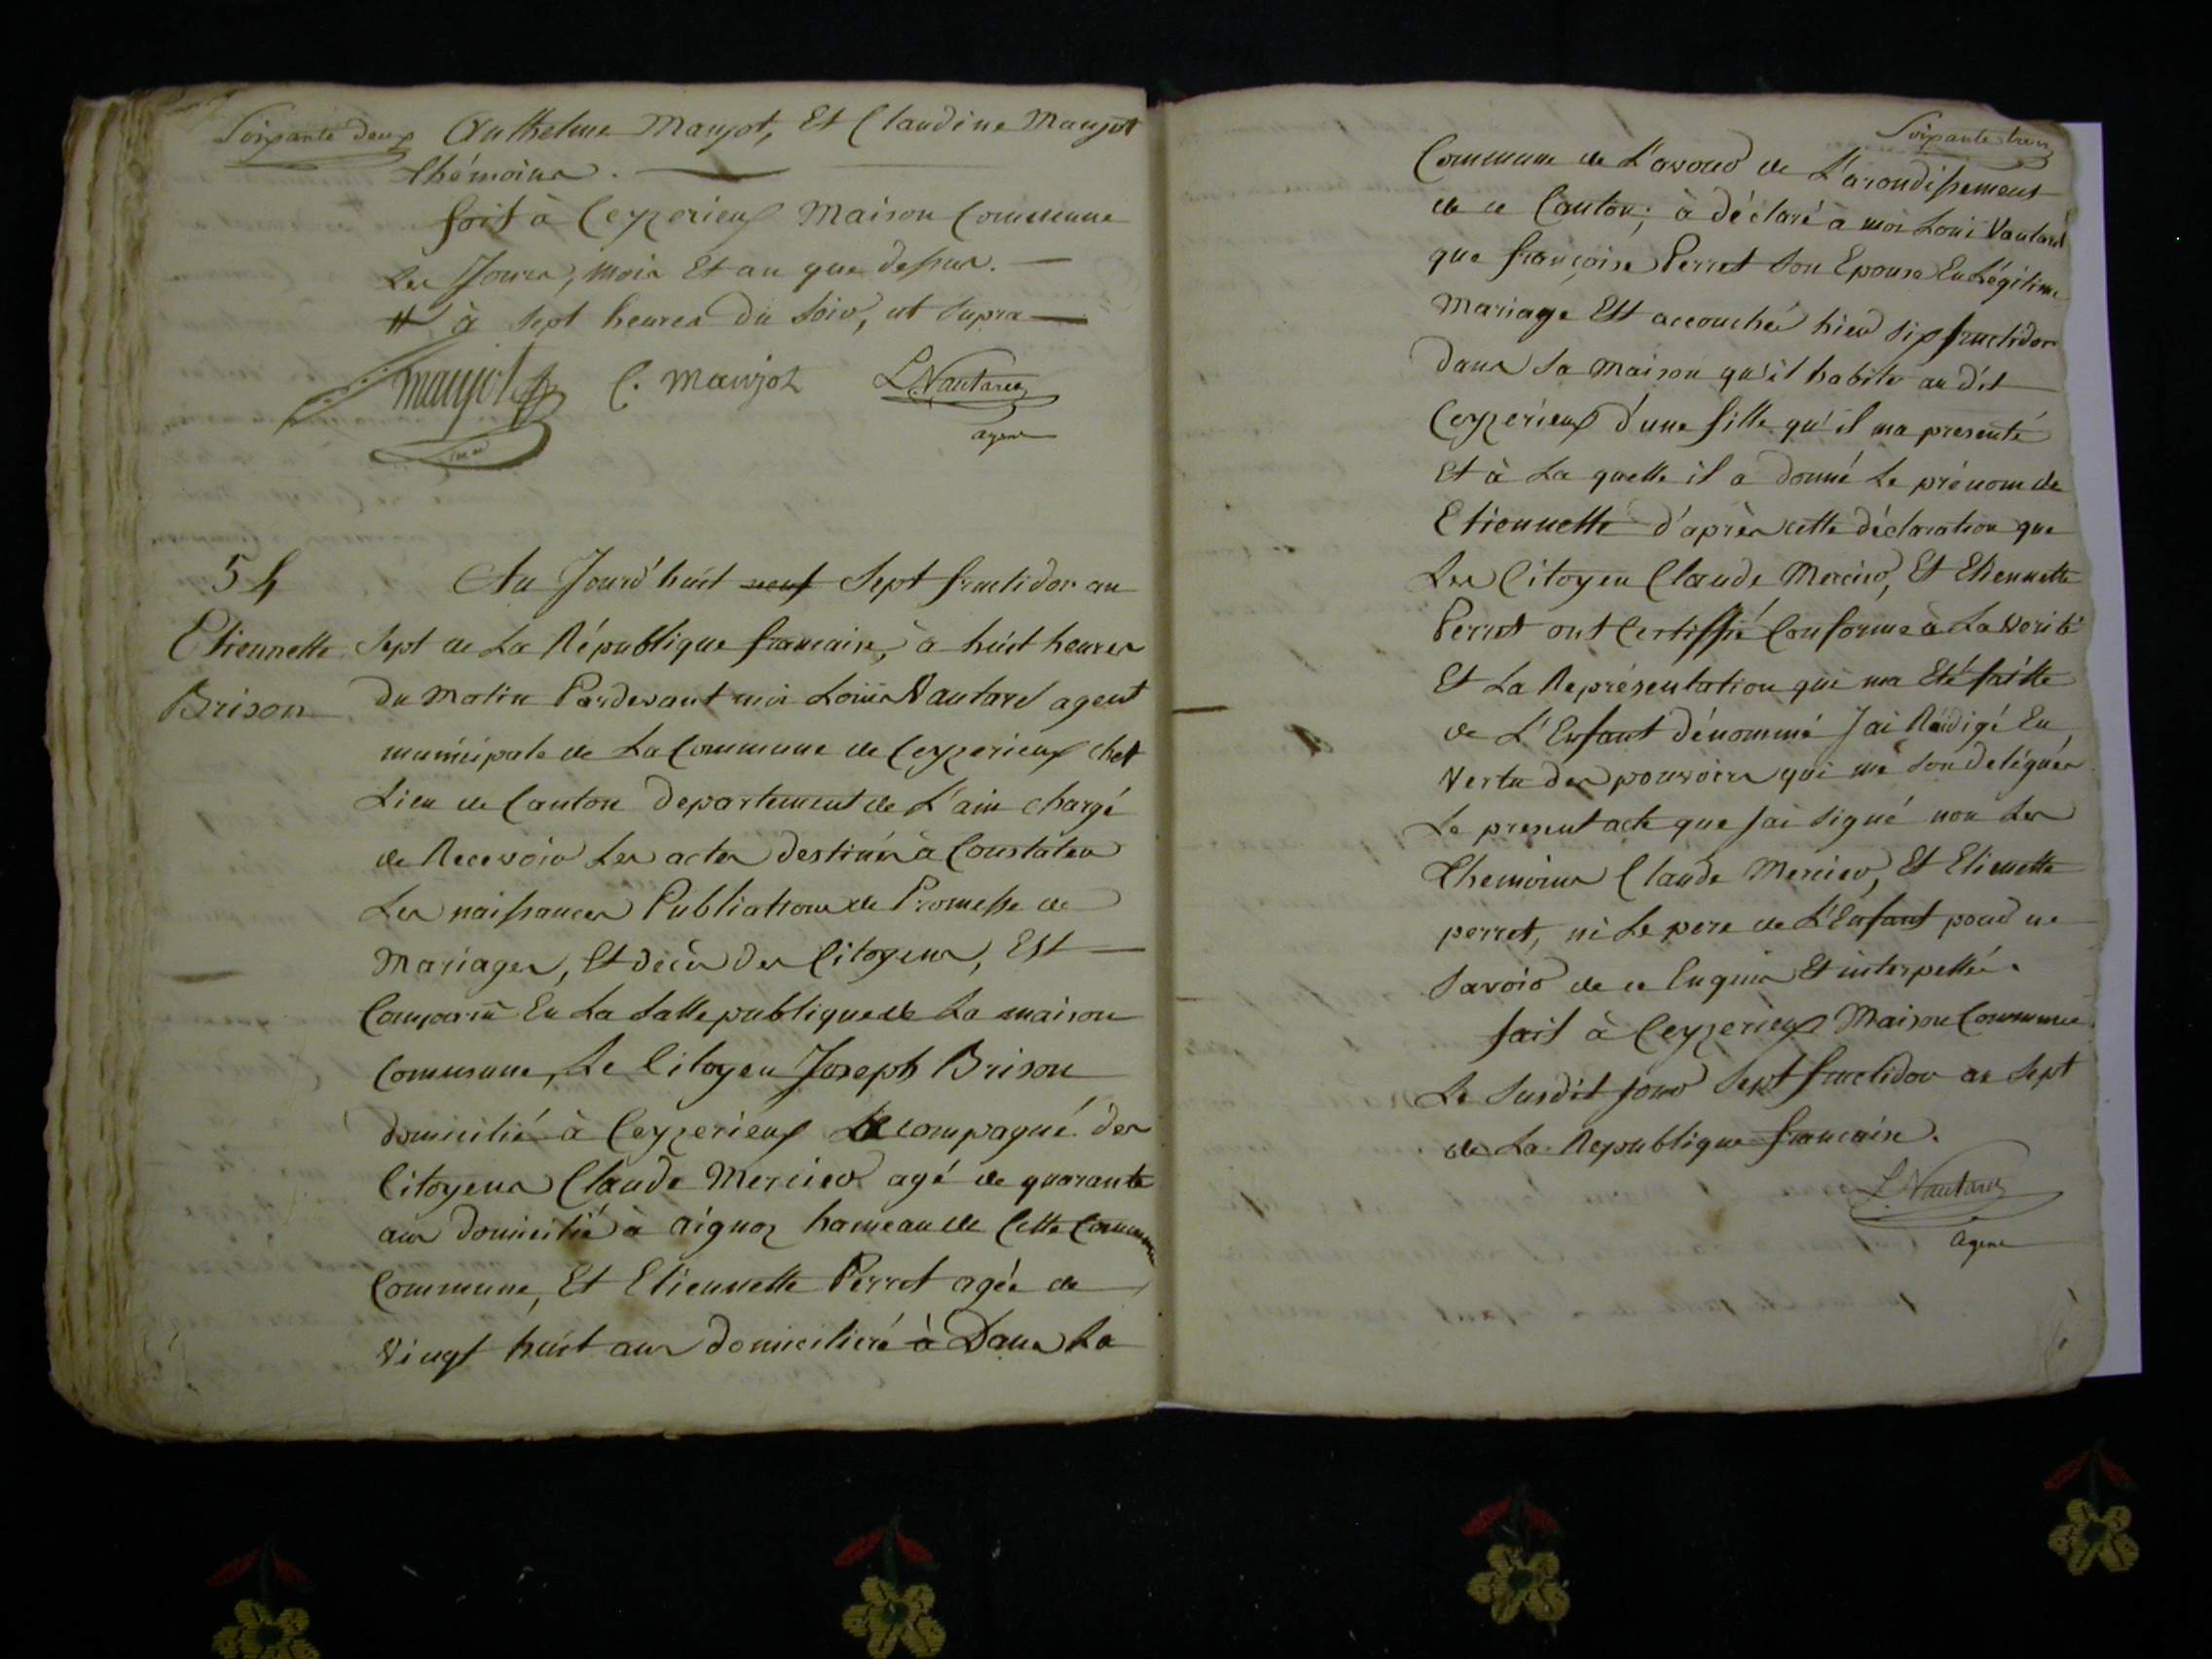 Soixante deux Anthelme Maujot, Et Claudine Maujot
thémoins.
fait à Ceyzerieux Maison Commune
Les Jours, mois Et an que dessus.
# à sept heures du soir, ut supra
maujot C. Maujot L. Nautard
agent
54
Etiennette
Brison
Au Jourd'huit neuf Sept fructidor an
Sept de La République francaise, à huit heures
du matin Pardevant moi Louis Nautard agent
municipale de La Commune de Ceyzerieux chef
Lieu de Canton departement de L'ain chargé
de Recevoir Les actes destinés à Constater
Les naissances Publications de Promesse de
Mariages, Et décès des Citoyens, Est
Comparu En La Salle publique de La maison
Commune, Le Citoyen Joseph Brison
domicilié à Ceyzerieux accompagné des
Citoyens Claude Mercier agé de quarante
ans domicilié à aignoz hameau de Cette Commune
Commune, Et Etiennette Perret agée de
Vingt huit ans domicilieé à Dans La
Soixante trois
Commune de L'avour de L'arondissement
de ce Canton; à déclaré à moi Loui Nautard
que francoise Perret Son Epouse En Légitime
Mariage Est accouchée hier six fructidor
dans Sa maison qu'il habite au dit
Ceyzerieux d'une fille qu'il ma presenté
Et à La quelle il a donné Le prénom de
Etiennette d'après cette déclaration que
Les Citoyen Claude Mercier, Et Etiennette
Perret ont Certiffié Conforme à La Verité
Et La Représentation qui ma Eté faitte
de L'Enfant dénommé J'ai Rédigé En
Vertu des pouvoirs qui me Son delégués
Le present acte que J'ai signé non Les
Themoins Claude Mercier, Et Etienette
perret, ni Le pere de L'Enfant pour ne
Savoir de ce Enquis Et interpellés.
fait à Ceyzerieux Maison Commune
Le Susdit jour Sept fructidor an Sept
de La Republique francaise.
L. Nautard
agent